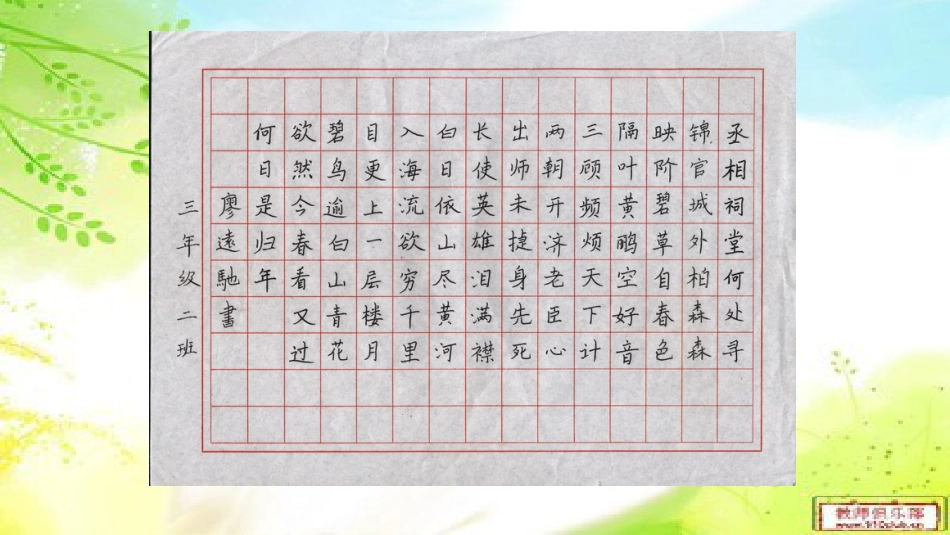 丞相祠堂何处寻
锦官城外柏森森
映阶碧草自春色
隔叶黄鹂空好音
三顾频烦天下计
两朝开济老臣心
出师未捷身先死
长使英雄泪满襟
白日依山尽黄河
入海流欲穷千里
目更上一层楼月
碧鸟逾白山青花
欲然今春看又过
何日是归年
廖遠馳書
三年级二班
教师俱乐部